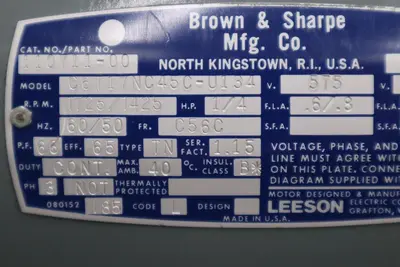 Brown & Sharpe
Mfg. Co.
NORTH KINGSTOWN, R.I., U.S.A.
CAT. NO./PART NO.
110711-00
MODEL C6T17NC45C-U134 V. 575
R.P.M. 1725/1425 H.P. 1/4 F.L.A. .6/.3
HZ. 60/50 FR. C56C S.F.A.
P.F. 66 EFF. 65 TYPE TN SER. FACT. 1.15
DUTY CONT. MAX. AMB. 40 °C INSUL. CLASS B
PH 3 NOT THERMALLY PROTECTED
080152 185 CODE L
MADE IN U.S.A.
VOLTAGE, PHASE, AND
LINE MUST AGREE WITH
ON THIS PLATE. CONNE
DIAGRAM SUPPLIED WIT
MOTOR DESIGNED & MANUF
LEESON ELECTRIC CO
GRAFTON, W